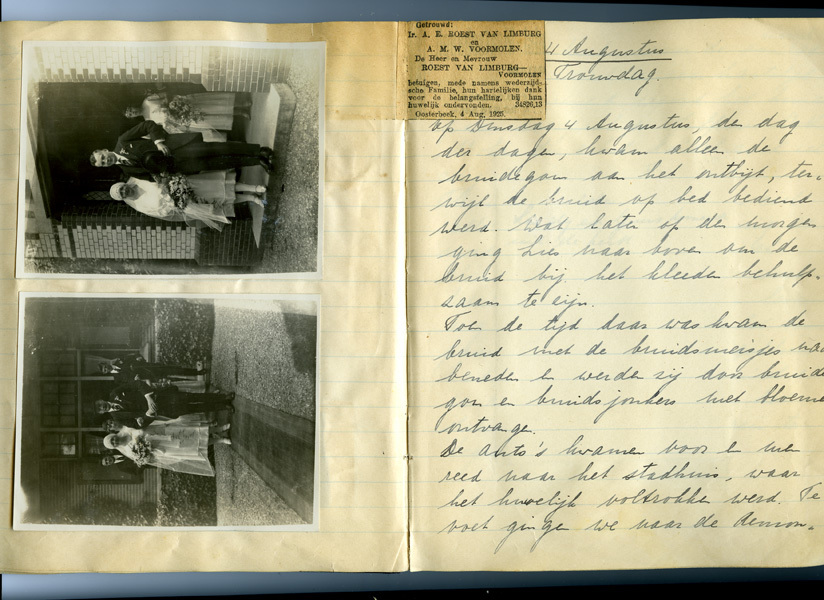 Getrouwd:
Ir. A. E. ROEST VAN LIMBURG
en
A. M. W. VOORMOLEN.
De Heer en Mevrouw
ROEST VAN LIMBURG—
VOORMOLEN
betuigen, mede namens wederzijd-
sche Familie, hun hartelijken dank
voor de belangstelling, bij hun
huwelijk ondervonden. 34826,13
Oosterbeek, 4 Aug. 1925.
4 Augustus
Trouwdag.
Op Dinsdag 4 Augustus, de dag
der dagen, kwam alleen de
bruidegom aan het ontbijt, ter-
wijl de bruid op bed bediend
werd. Wat later op den morgen
ging Lies naar boven om de
bruid bij het kleeden behulp-
zaam te zijn.
Toen de tijd daar was kwam de
bruid met de bruidsmeisjes naar
beneden en werden zij door bruide
gom en bruidsjonkers met bloemen
ontvangen.
De auto's kwamen voor en men
reed naar het stadhuis, waar
het huwelijk voltrokken werd. Te
voet gingen we naar de Remon-